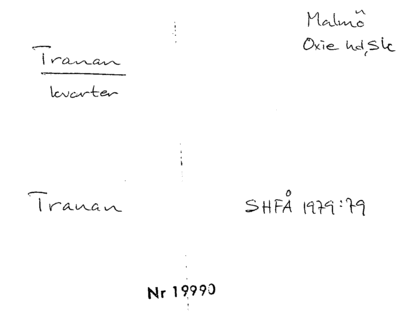 Malmö
Oxie hd, Sk
Tranan
kvarter
Tranan
SHFÅ 1979:79
Nr 19990